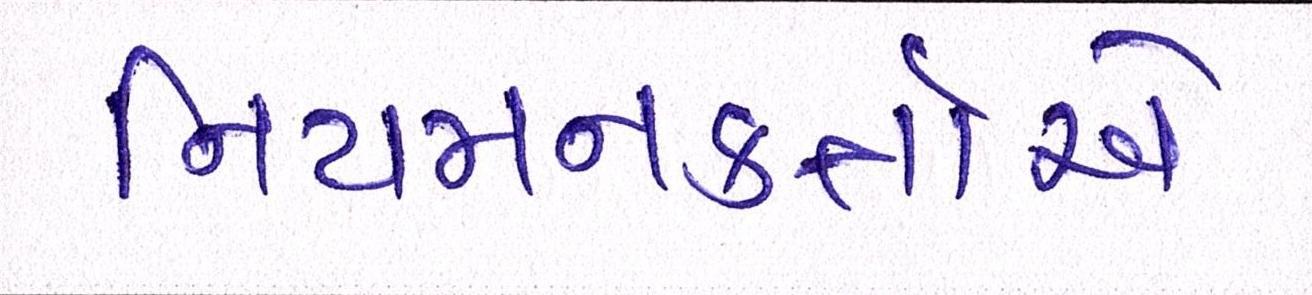 નિયમનકર્તાએ